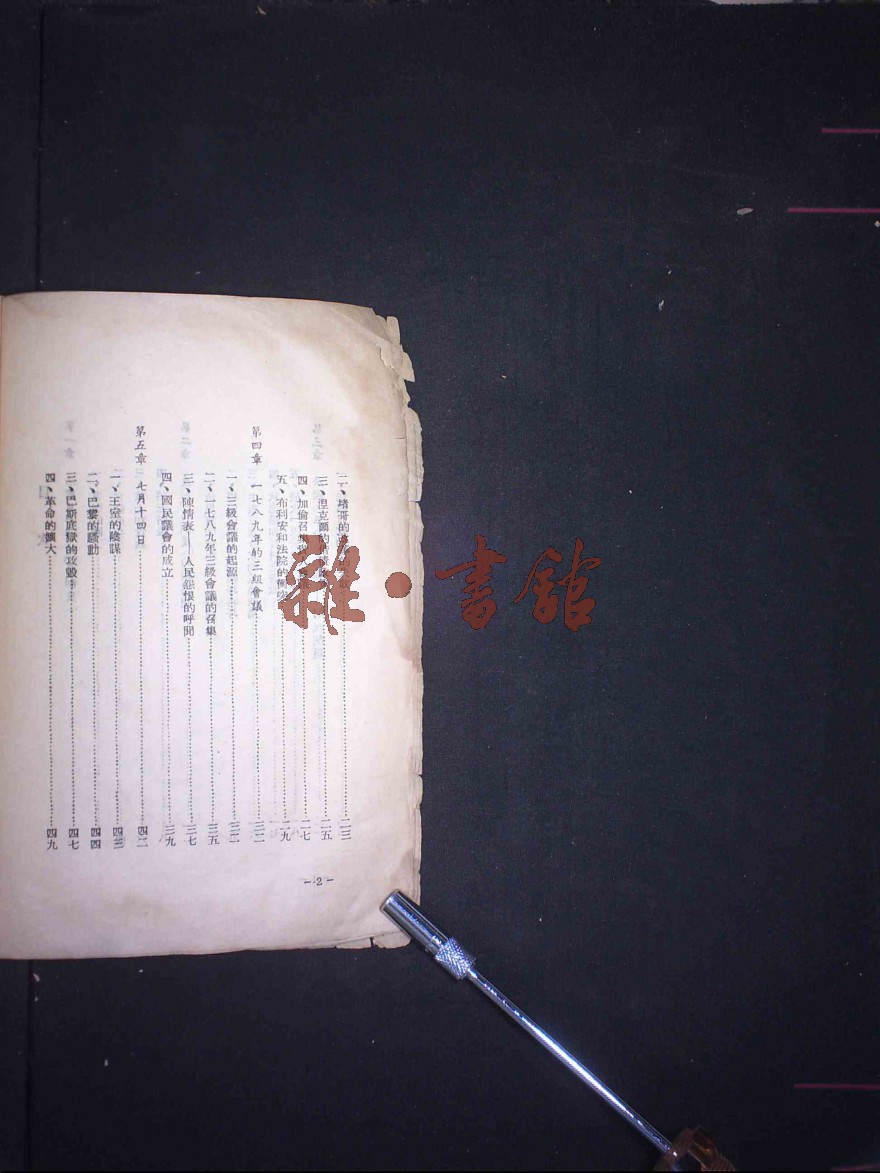 二、堵哥的……二三
三、涅克爾的……二五
四、加倫召集……二七
五、布利安和法院的……二九
第四章 一七八九年的三級會議……三二
一、三級會議的起源……三二
二、一七八九年三級會議的召集……三五
三、陳情表——人民怨恨的呼聞……三七
四、國民議會的成立……三九
第五章 七月十四日……四二
一、王室的陰謀……四三
二、巴黎的騷動……四四
三、巴斯底獄的攻毀……四七
四、革命的擴大……四九
—2—
雜·書館